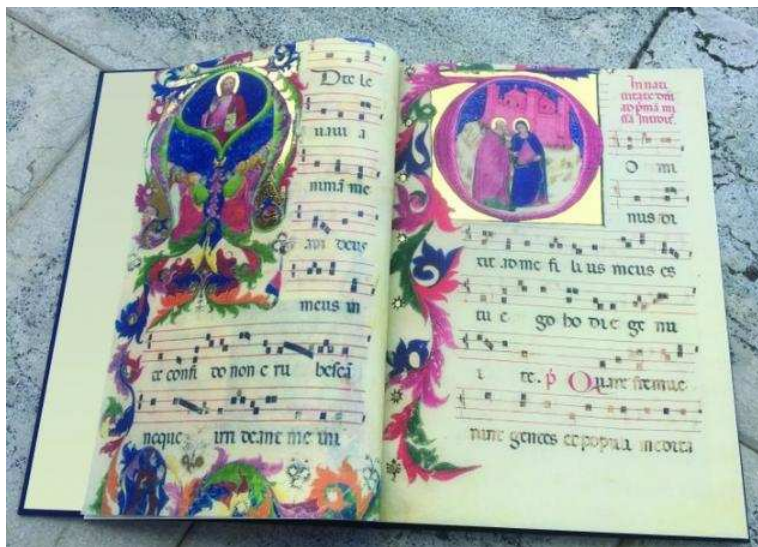 D te le
uaui a
nimã me
am deus
meus in
te confi do non e ru bescã
neque irri deant me ini
In nati
uitate dñi
ad pmã mi
sã Introit.
O mi
nus di
xit ad me fi li us meus es
tu e go ho di e ge nu
i te. p Quare fremue
runt gentes et populi medita